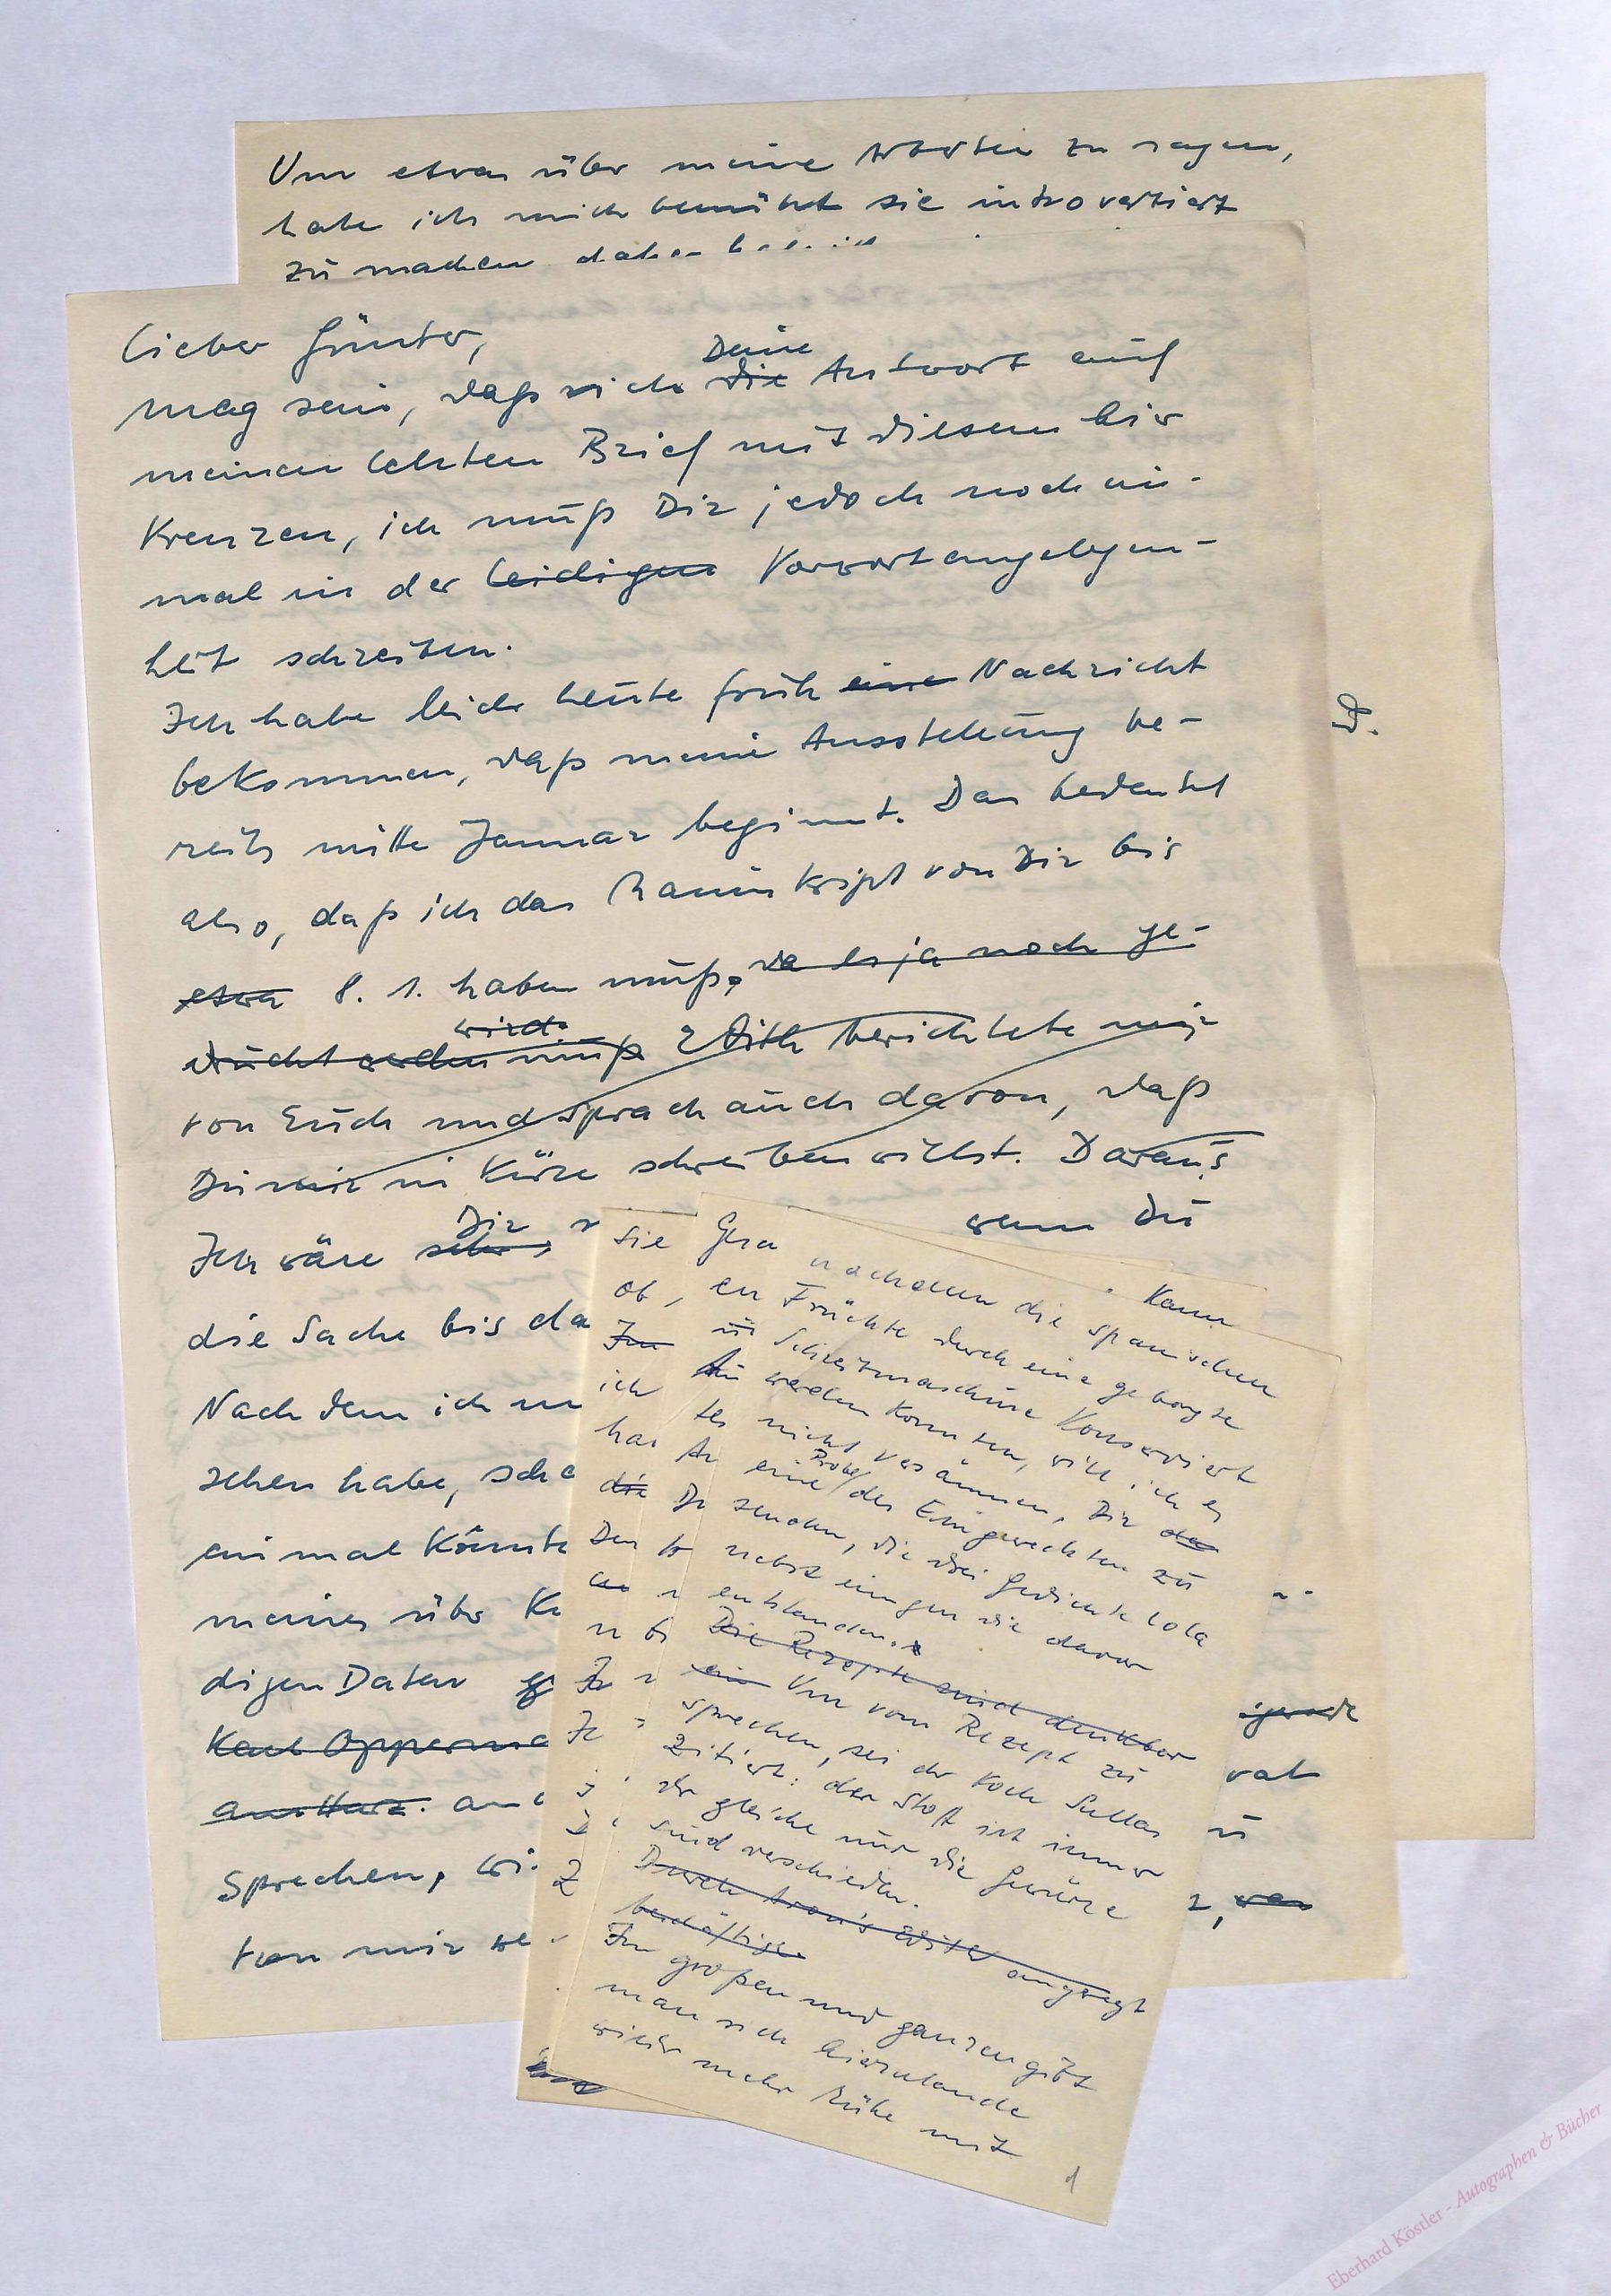 Um etwas über meine Arbeiten zu sagen,
habe ich mich bemüht sie introvertiert
zu machen daher
D.
Lieber Günter,
mag sein, daß sich die Deine Antwort auf
meinen letzten Brief mit diesem hier
Kreuzen, ich muß Dir jedoch noch ein-
mal in der leidigen Vorwortangelegen-
heit schreiben.
Ich habe leider heute früh eine Nachricht
bekommen, daß meine Ausstellung be-
reits mitte Januar beginnt. Das bedeutet
also, daß ich das Manuskript von Dir bis
etwa 8. 1. haben muß, da es ja noch ge-
druckt werden muß wird. Edith berichtete mir
von Euch und sprach auch davon, daß
Du mir in Kürze schreiben willst. Daraus
Ich wäre sehr, Dir
wenn Du
die Sache bis da
Nachdem ich
sehen habe,
einmal könnte
meines über
digen Daten
Karl Opperma
am Harz.
Sprechen, wi
von mir we
rat
Sie
ob,
Im
ich
die
Den
Gern
Kann
nachdem die spanischen
Früchte durch eine geborgte
Schreibmaschine Konserviert
werden konnten, will ich es
nicht versäumen, Dir da
eine Probe des Eingeweckten zu
senden, die drei Gedichte Lola
nebst einigen die davor
entstanden.
Die Rezepte sind denkbar
ein Um vom Rezept zu
sprechen, sei der Koch Sullas
Zitiert: der Stoff ist immer
der gleiche nur die Gewürze
sind verschieden.
Durch angeregt
beschäftige
Im großen und ganzen gibt
man sich hierzulande
wieder mehr Mühe mit
1
Eberhard Köstler - Autographen & Bücher